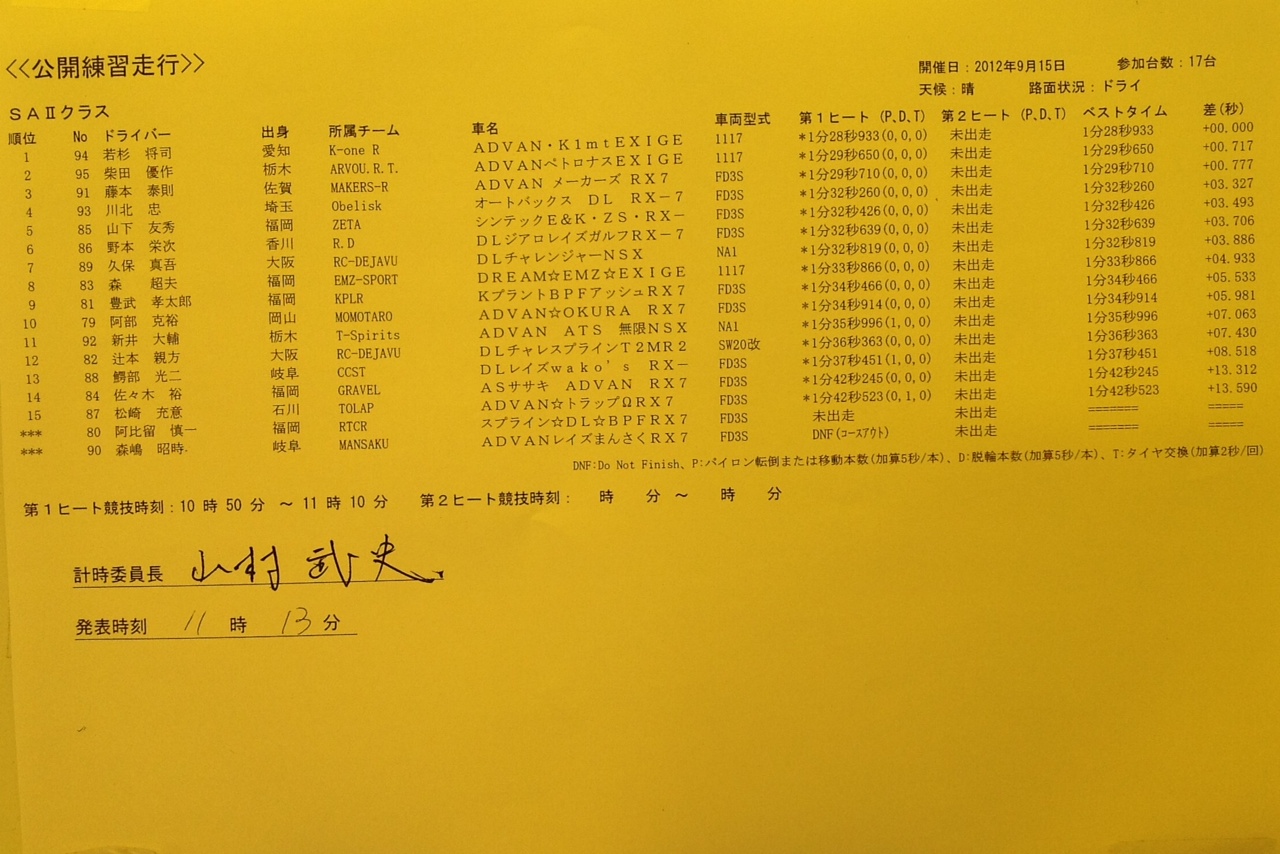 <<公開練習走行>>
開催日：2012年9月15日　参加台数：17台
天候：晴　路面状況：ドライ
SAⅡクラス
順位 No ドライバー 出身 所属チーム 車名 車両型式 第1ヒート (P、D、T) 第2ヒート (P、D、T) ベストタイム 差(秒)
1 94 若杉　将司 愛知 K-one R ADVAN・K1mtEXIGE 1117 *1分28秒933(0,0,0) 未出走 1分28秒933 +00.000
2 95 柴田　優作 栃木 ARVOU.R.T. ADVANペトロナスEXIGE 1117 *1分29秒650(0,0,0) 未出走 1分29秒650 +00.717
3 91 藤本　泰則 佐賀 MAKERS-R ADVAN メーカーズ RX7 FD3S *1分29秒710(0,0,0) 未出走 1分29秒710 +00.777
4 93 川北　忠 埼玉 Obelisk オートバックス DL RX-7 FD3S *1分32秒260(0,0,0) 未出走 1分32秒260 +03.327
5 85 山下　友秀 福岡 ZETA シンテックE&K・ZS・RX- FD3S *1分32秒426(0,0,0) 未出走 1分32秒426 +03.493
6 86 野本　栄次 香川 R.D DLジアロレイズガルフRX-7 FD3S *1分32秒639(0,0,0) 未出走 1分32秒639 +03.706
7 89 久保　真吾 大阪 RC-DEJAVU DLチャレンジャーNSX NA1 *1分32秒819(0,0,0) 未出走 1分32秒819 +03.886
8 83 森　超夫 福岡 EMZ-SPORT DREAM☆EMZ☆EXIGE 1117 *1分33秒866(0,0,0) 未出走 1分33秒866 +04.933
9 81 豊武　孝太郎 福岡 KPLR KプラントBPFアッシュRX7 FD3S *1分34秒466(0,0,0) 未出走 1分34秒466 +05.533
10 79 阿部　克裕 岡山 MOMOTARO ADVAN☆OKURA RX7 FD3S *1分34秒914(0,0,0) 未出走 1分34秒914 +05.981
11 92 新井　大輔 栃木 T-Spirits ADVAN ATS 無限NSX NA1 *1分35秒996(1,0,0) 未出走 1分35秒996 +07.063
12 82 辻本　親方 大阪 RC-DEJAVU DLチャレスプラインT2MR2 SW20改 *1分36秒363(0,0,0) 未出走 1分36秒363 +07.430
13 88 鰐部　光二 岐阜 CCST DLレイズwako's RX- FD3S *1分37秒451(1,0,0) 未出走 1分37秒451 +08.518
14 84 佐々木　裕 福岡 GRAVEL ASササキ ADVAN RX7 FD3S *1分42秒245(0,0,0) 未出走 1分42秒245 +13.312
15 87 松崎　充意 石川 TOLAP ADVAN☆トラップΩRX7 FD3S *1分42秒523(0,1,0) 未出走 1分42秒523 +13.590
*** 80 阿比留　慎一 福岡 RTCR スプライン☆DL☆BPFRX7 FD3S 未出走 未出走 ======= =====
*** 90 森嶋　昭時 岐阜 MANSAKU ADVANレイズまんさくRX7 FD3S DNF(コースアウト) 未出走 ======= =====
DNF:Do Not Finish、P:パイロン転倒または移動本数(加算5秒/本)、D:脱輪本数(加算5秒/本)、T:タイヤ交換(加算2秒/回)
第1ヒート競技時刻：10 時 50 分　～ 11 時 10 分　第2ヒート競技時刻：　時　分 ～　時　分
計時委員長　山村 武史
発表時刻　11　時　13　分